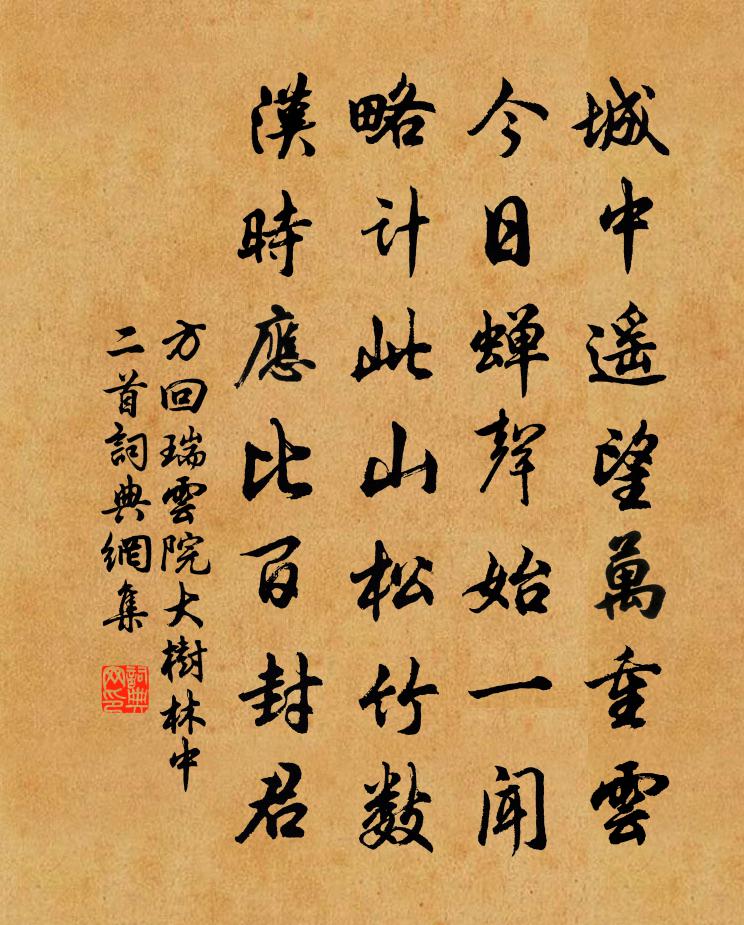 城中遥望萬重雲
今日蟬聲始一聞
略計此山松竹數
漢時應比百封君
方回瑞雲院大樹林中
二首詞典網集
詞典网印